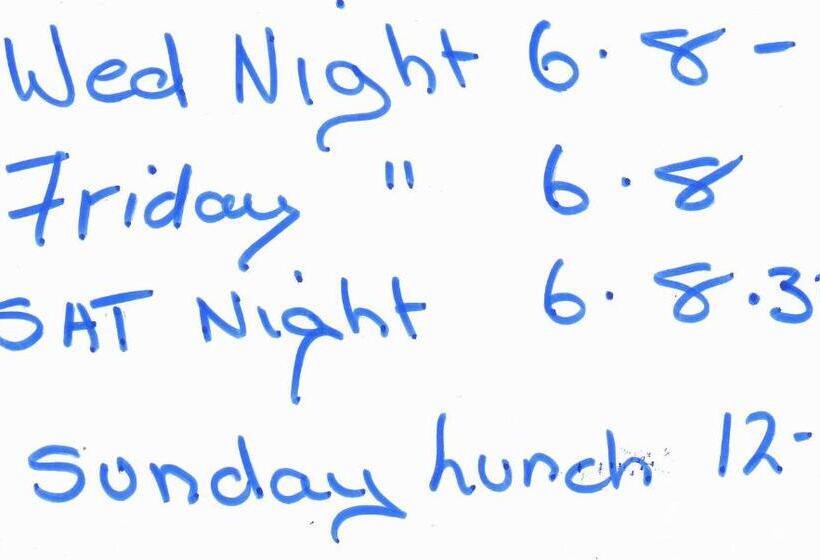 Wed Night 6. 8 -
Friday " 6. 8
SAT Night 6. 8.3
Sunday Lunch 12-